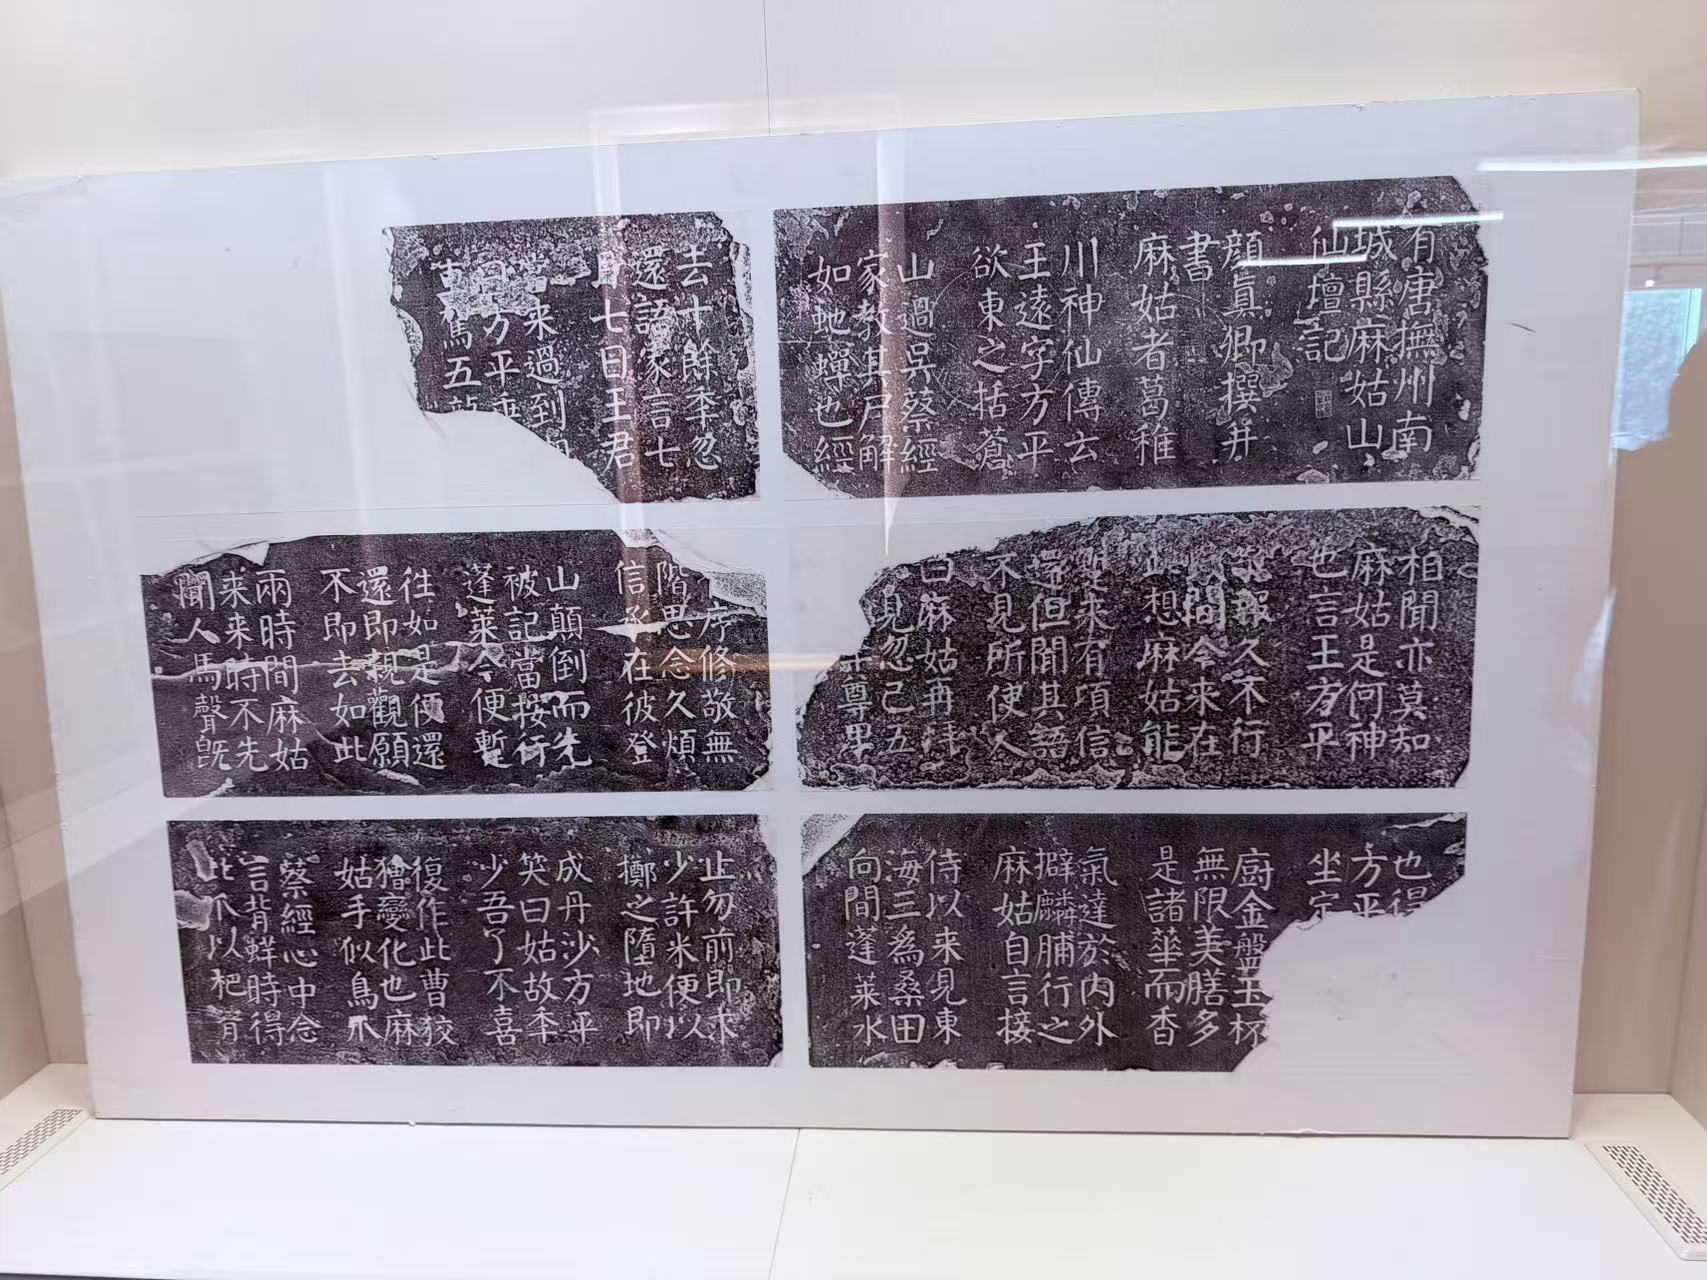 有唐撫州南
城縣麻姑山
仙壇記
顔真卿撰并
書
麻姑者葛稚
川神仙傳云
王遠字方平
欲東之括蒼
山過吳蔡經
家教其尸解
如虵蟬也經
去十餘年忽
還語家言七
月七日王君
當来過到
日方平乗
駕五龍
相聞亦莫知
麻姑是何神
也言王方平
敬報久不行
民間今来在
此想麻姑能
蹔来有頃信
還但聞其語
不見所使人
曰麻姑再拜
見忽已五
尊卑
序修敬無
階思念久煩
信承在彼登
山顛倒而先
被記當按行
蓬萊今便蹔
往如是便還
還即親觀願
不即去如此
兩時間麻姑
来来時不先
聞人馬聲既
也得
方平
坐定
廚金盤玉杯
無限美膳多
是諸華而香
氣達於内外
擗麟脯行之
麻姑自言接
侍以来見東
海三為桑田
向間蓬萊水
止勿前即求
少許米便以
擲之墮地即
成丹沙方平
笑曰姑故年
少吾了不喜
復作此曹狡
獪變化也麻
姑手似鳥爪
蔡經心中念
言背蛘時得
此爪以杷背